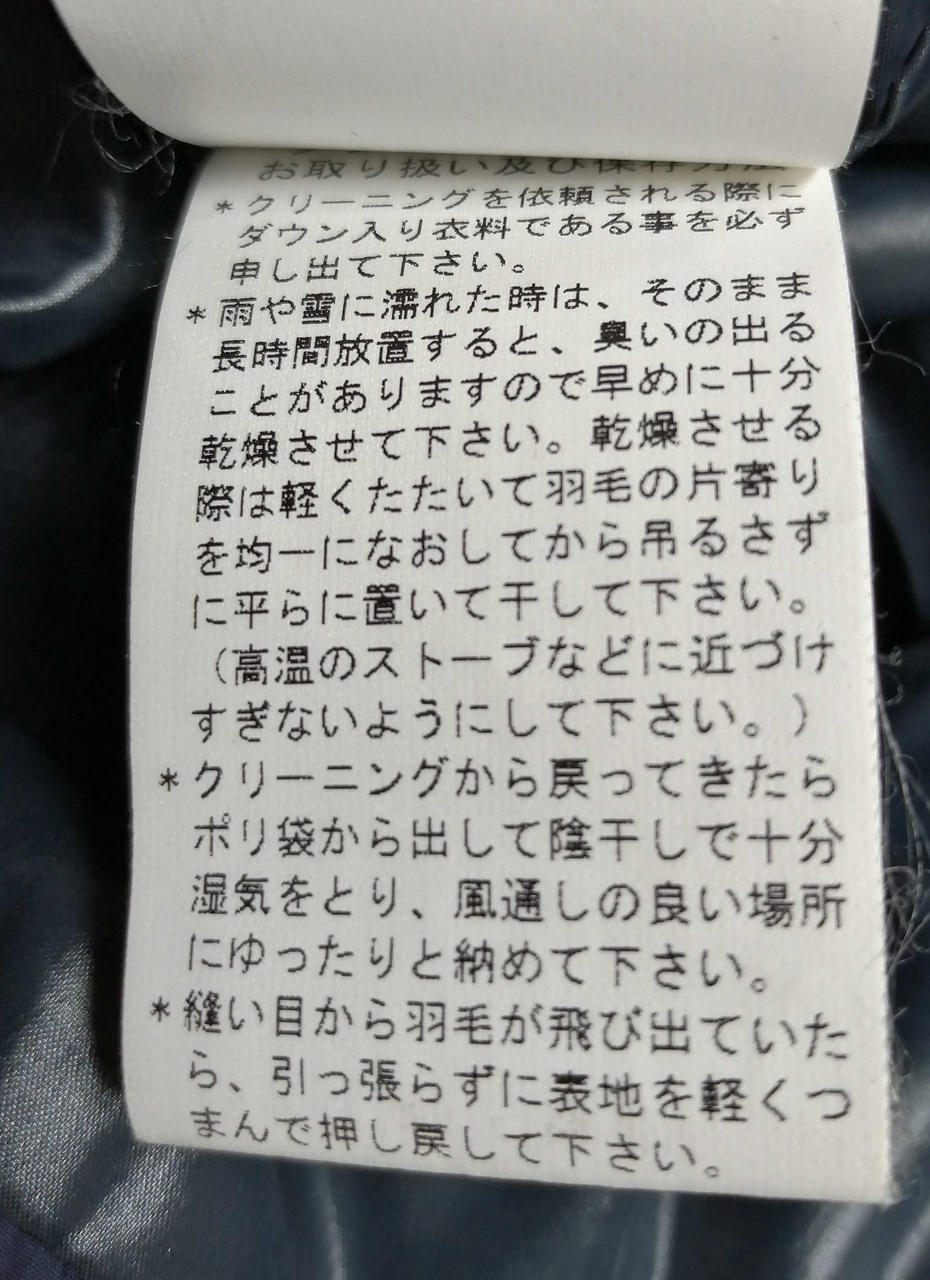 お取り扱い及び保存方法
*クリーニングを依頼される際に
ダウン入り衣料である事を必ず
申し出て下さい。
*雨や雪に濡れた時は、そのまま
長時間放置すると、臭いの出る
ことがありますので早めに十分
乾燥させて下さい。乾燥させる
際は軽くたたいて羽毛の片寄り
を均一になおしてから吊るさず
に平らに置いて干して下さい。
（高温のストーブなどに近づけ
すぎないようにして下さい。）
*クリーニングから戻ってきたら
ポリ袋から出して陰干しで十分
湿気をとり、風通しの良い場所
にゆったりと納めて下さい。
*縫い目から羽毛が飛び出ていた
ら、引っ張らずに表地を軽くつ
まんで押し戻して下さい。